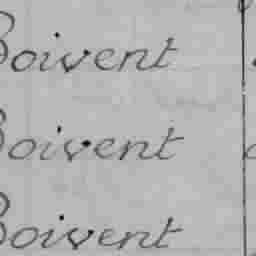 Boivent
Boivent
Boivent